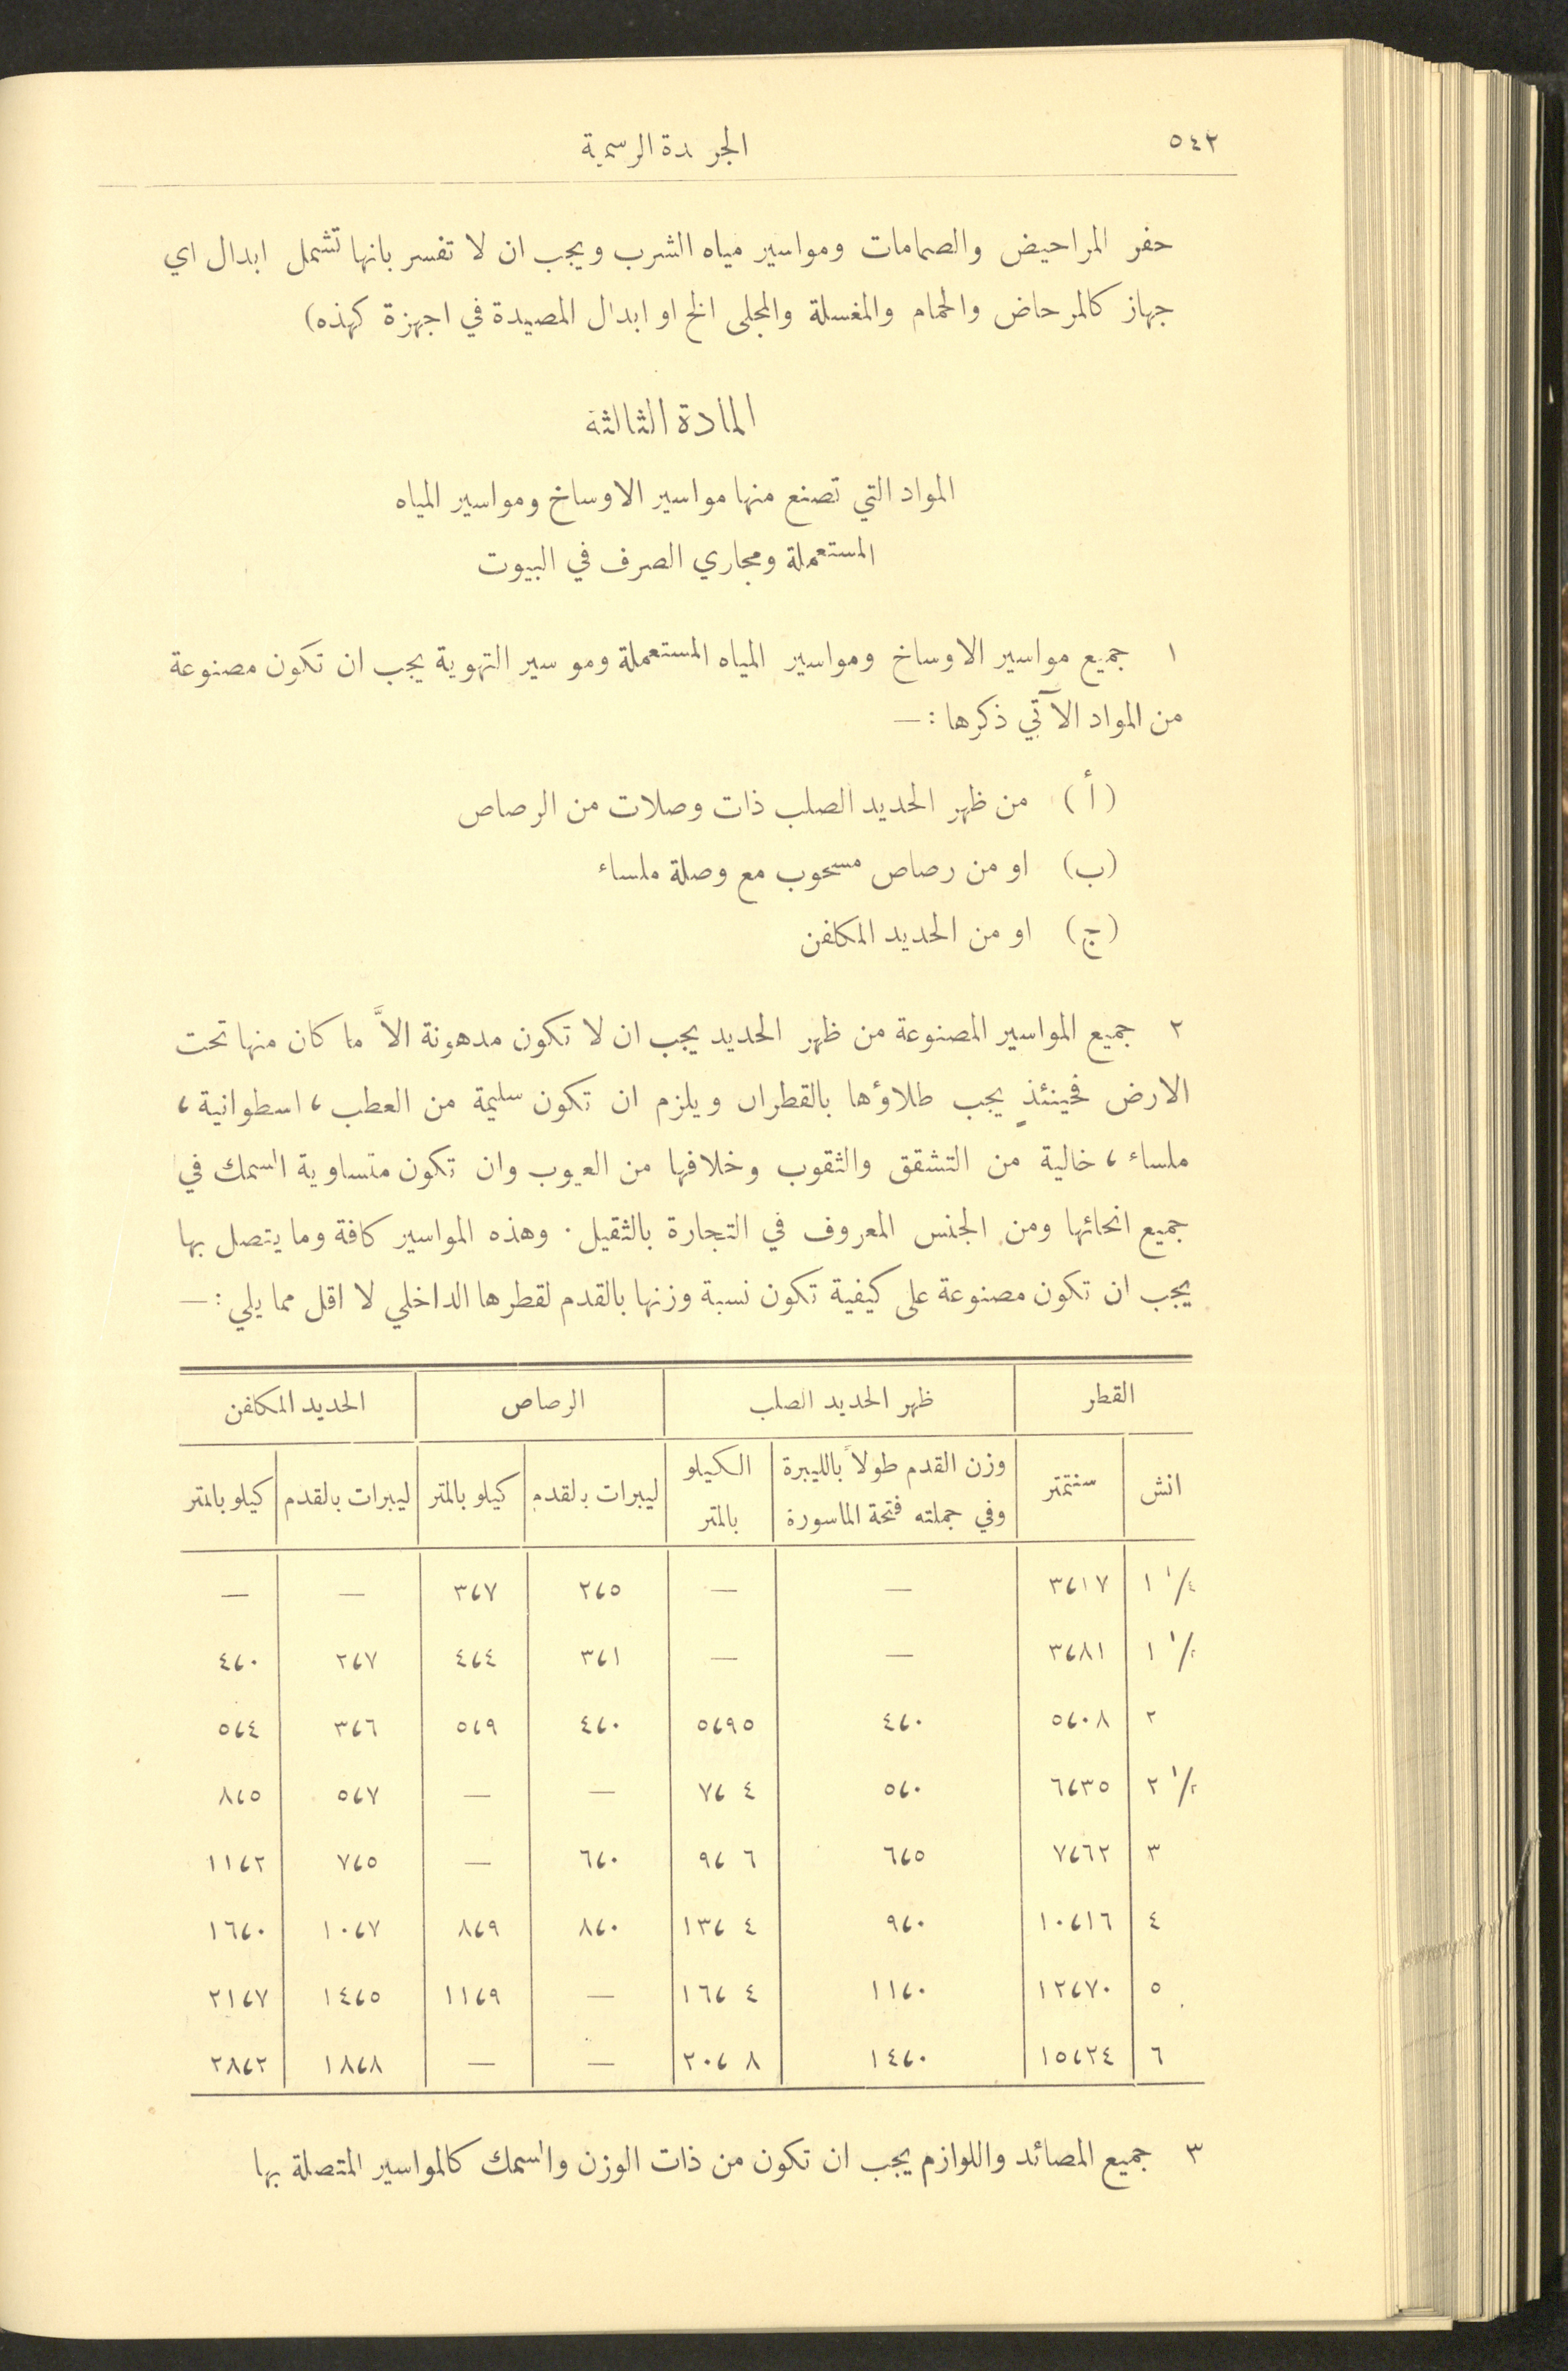 ٥٤٢
الجريدة الرسمية
حفر المراحيض والصمامات ومواسير مياه الشرب ويجب ان لا تفسر بانها تشمل ابدال اي
جهاز كالمرحاض والحمام والمغسلة والمجلى الخ او ابدال المصيدة في اجهزة كهذه)
المادة الثالثة
المواد التي تصنع منها مواسير الاوساخ ومواسير المياه
المستعملة ومجاري الصرف في البيوت
١ جميع مواسير الاوساخ ومواسير المياه المستعملة ومو سير التهوية يجب ان تكون مصنوعة
من المواد الآتي ذكرها :—
(أ) من ظهر الحديد الصلب ذات وصلات من الرصاص
(ب) او من رصاص مسحوب مع وصلة ملساء
(ج) او من الحديد المكلفن
٢ جميع المواسير المصنوعة من ظهر الحديد يجب ان لا تكون مدهونة الاَّ ما كان منها تحت
الارض فحينئذٍ يجب طلاؤها بالقطران ويلزم ان تكون سليمة من العطب ، اسطوانية ،
ملساء ، خالية من التشقق والثقوب وخلافها من العيوب وان تكون متساوية السمك في
جميع انحائها ومن الجنس المعروف في التجارة بالثقيل . وهذه المواسير كافة وما يتصل بها
يجب ان تكون مصنوعة على كيفية تكون نسبة وزنها بالقدم لقطرها الداخلي لا اقل مما يلي :—
القطر ظهر الحديد الصلب الرصاص الحديد المكلفن
انش سنتمتر وزن القدم طولاً بالليبرة وفي جملته فتحة الماسورة الكيلو بالمتر ليبرات بالقدم كيلو بالمتر ليبرات بالقدم كيلو بالمتر
١ ١/٤ ٣،١٧ — — ٢،٥ ٣،٧ — —
١ ١/٢ ٣،٨١ — — ٣،١ ٤،٤ ٢،٧ ٤،٠
٢ ٥،٠٨ ٤،٠ ٥،٩٥ ٤،٠ ٥،٩ ٣،٦ ٥،٤
٢ ١/٢ ٦،٣٥ ٥،٠ ٧،٤ — — ٥،٧ ٨،٥
٣ ٧،٦٢ ٦،٥ ٩،٦ ٦،٠ — ٧،٥ ١١،٢
٤ ١٠،١٦ ٩،٠ ١٣،٤ ٨،٠ ٨،٩ ١٠،٧ ١٦،٠
٥ ١٢،٧٠ ١١،٠ ١٦،٤ — ١١،٩ ١٤،٥ ٢١،٧
٦ ١٥،٢٤ ١٤،٠ ٢٠،٨ — — ١٨،٨ ٢٨،٢
٣ جميع المصائد واللوازم يجب ان تكون من ذات الوزن والسمك كالمواسير المتصلة بها